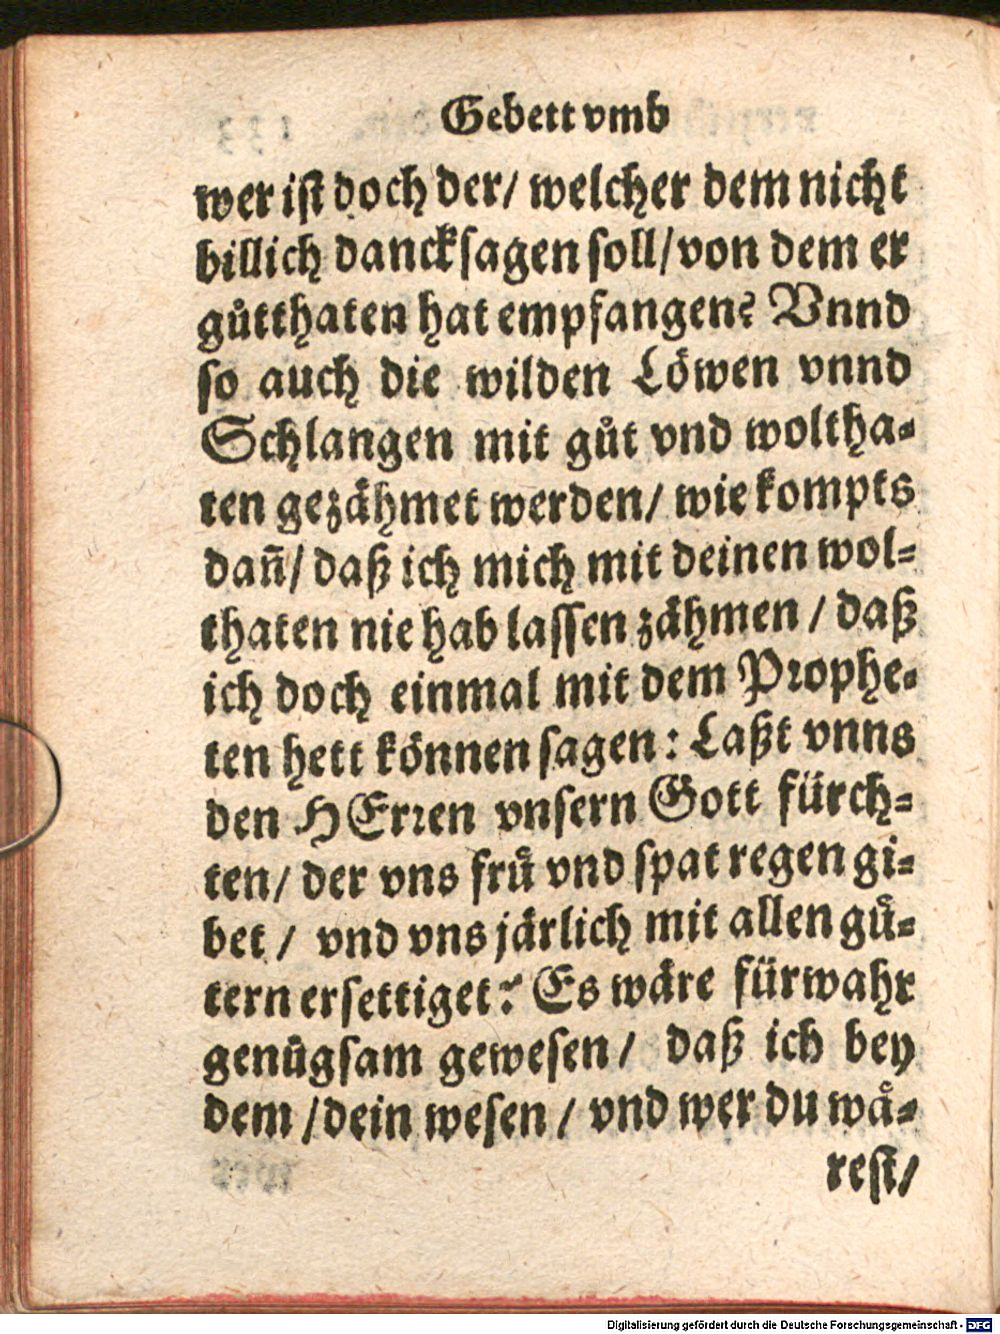 Gebett vmb
wer ist doch der/ welcher dem nicht
billich dancksagen soll/ von dem er
gůtthaten hat empfangen? Vnnd
so auch die wilden Löwen vnnd
Schlangen mit gůt vnd woltha-
ten gezähmet werden/ wie kompts
dañ/ daß ich mich mit deinen wol-
thaten nie hab lassen zähmen / daß
ich doch einmal mit dem Prophe-
ten hett können sagen: Laßt vnns
den HErren vnsern Gott fürch-
ten/ der vns frů vnd spat regen gi-
bet / vnd vns järlich mit allen gů-
tern ersettiget? Es wäre fürwahr
genůgsam gewesen / daß ich bey
dem / dein wesen / vnd wer du wä-
rest/
Digitalisierung gefördert durch die Deutsche Forschungsgemeinschaft - DFG